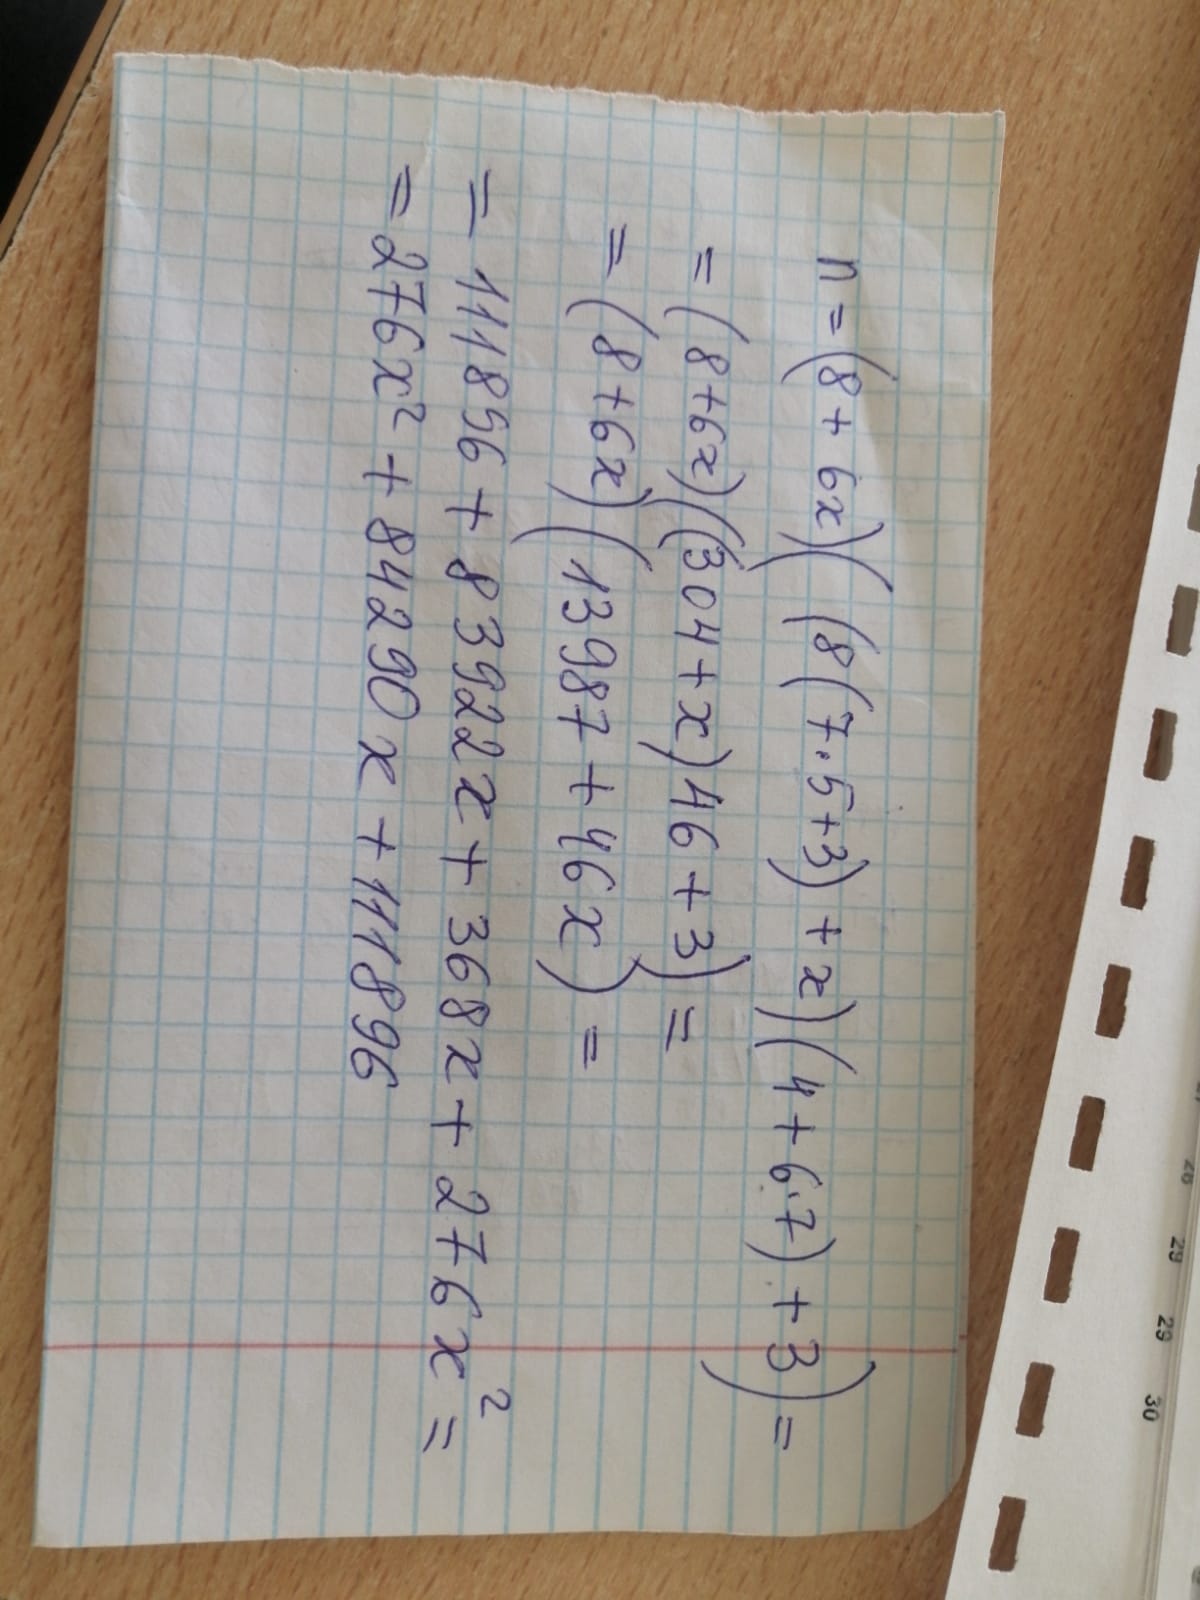 27 28 29 29 30
n = (8 + 6x)((8(7·5+3) + x)(4 + 6·7) + 3) =
= (8+6x)((304+x)46+3) =
= (8+6x)(13987 + 46x) =
= 111896 + 83922x + 368x + 276x² =
= 276x² + 84290x + 111896